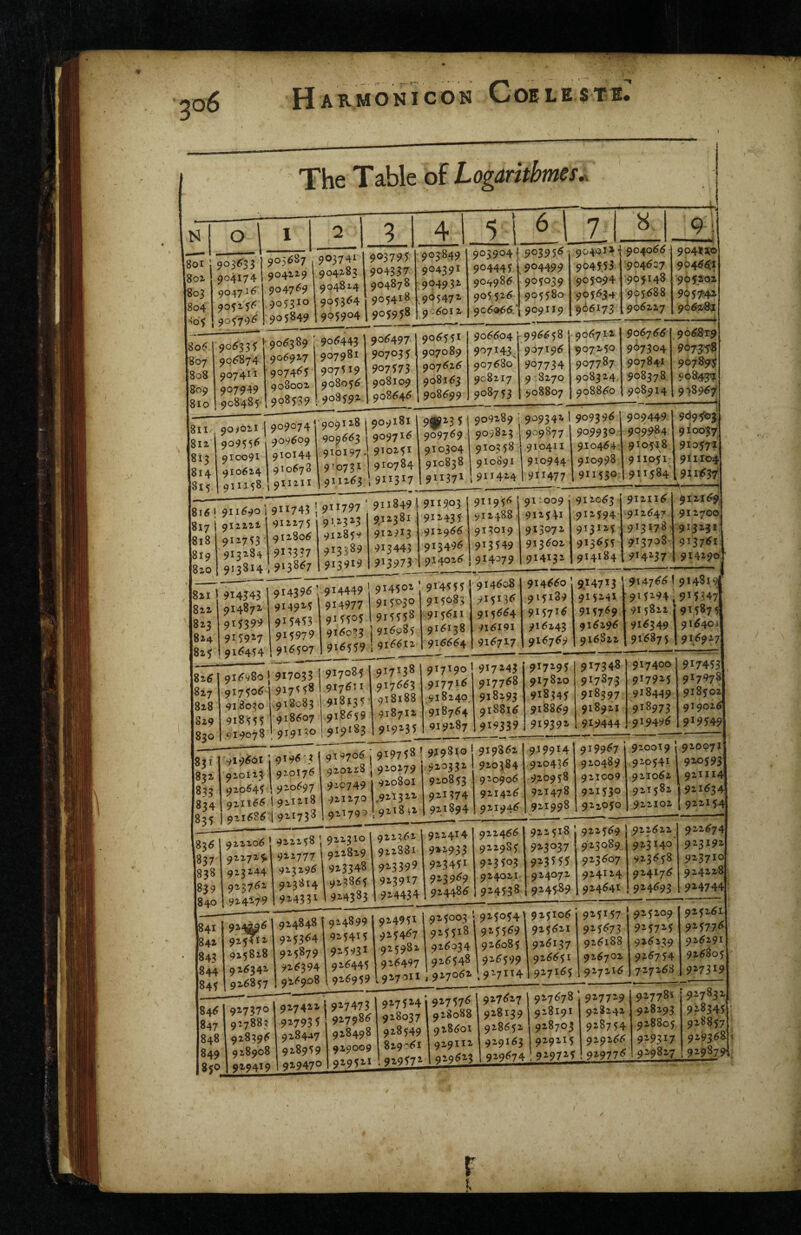 306 HARMONICON COELESTE.
The Table of Logarithmes.
N | 0 | 1 | 2 | 3 | 4 | 5 | 6 | 7 | 8 | 9
801 903633 903687 903741 903795 903849 903904 903956 904012 904066 904120
802 904174 904229 904283 904337 904391 904445 904499 904553 904607 904661
803 904716 904769 904824 904878 904932 904986 905039 905094 905148 905202
804 905256 905310 905364 905418 905472 905526 905580 905634 905688 905742
805 905796 905849 905904 905958 9 6012 906066 909119 906173 906227 906281
806 906335 906389 906443 906497 906551 906604 996658 906712 906766 906819
807 906874 906927 907981 907035 907089 907143 907196 907250 907304 907358
808 907411 907465 907519 907573 907626 907680 907734 907787 907841 907895
809 907949 908002 908056 908109 908163 908217 9 8270 908324 908378 908431
810 908485 908539 908592 908646 908699 908753 908807 908860 908914 908967
811 909021 909074 909128 909181 909235 909289 909342 909396 909449 909503
812 909556 909609 909663 909716 909769 909823 909877 909930 909984 910037
813 910091 910144 910197 910251 910304 910358 910411 910464 910518 910571
814 910624 910678 910731 910784 910838 910891 910944 910998 911051 911104
815 911158 911211 911263 911317 911371 911424 911477 911530 911584 911637
816 911690 911743 911797 911849 911903 911956 912009 912063 912116 912169
817 912222 912275 912323 912381 912435 912488 912541 912594 912647 912700
818 912753 912806 912859 912913 912966 913019 913072 913125 913178 913231
819 913284 913337 913389 913443 913496 913549 913602 913655 913708 913761
820 913814 913867 913919 913973 914026 914079 914132 914184 914237 914290
821 914343 914396 914449 914502 914555 914608 914660 914713 914766 914819
822 914872 914925 914977 915030 915083 915136 915189 915241 915294 915347
823 915399 915453 915505 915558 915611 915664 915716 915769 915822 915875
824 915927 915979 916033 916085 916138 916191 916243 916296 916349 916401
825 916454 916507 916559 916612 916664 916717 916769 916822 916875 916927
826 916980 917033 917085 917138 917190 917243 917295 917348 917400 917453
827 917506 917558 917611 917663 917716 917768 917820 917873 917925 917978
828 918030 918083 918135 918188 918240 918293 918345 918397 918449 918502
829 918555 918607 918659 918712 918764 918816 918869 918921 918973 919026
830 919078 919130 919183 919235 919287 919339 919392 919444 919496 919549
831 919601 919653 919706 919758 919810 919862 919914 919967 920019 920071
832 920123 920176 920228 920279 920332 920384 920436 920489 920541 920593
833 920645 920697 920749 920801 920853 920906 920958 921009 921062 921114
834 921166 921218 921270 921322 921374 921426 921478 921530 921582 921634
835 921686 921738 921790 921842 921894 921946 921998 922050 922102 922154
836 922206 922258 922310 922362 922414 922466 922518 922569 922622 922674
837 922725 922777 922829 922881 922933 922985 923037 923089 923140 923192
838 923244 923296 923348 923399 923451 923503 923555 923607 923658 923710
839 923762 923814 923865 923917 923969 924021 924072 924124 924176 924228
840 924279 924331 924383 924434 924486 924538 924589 924641 924693 924744
841 924796 924848 924899 924951 925003 925054 925106 925157 925209 925261
842 925312 925364 925415 925467 925518 925569 925621 925673 925725 925776
843 925828 925879 925931 925982 926034 926085 926137 926188 926239 926291
844 926342 926394 926445 926497 926548 926599 926651 926702 926754 926805
845 926857 926908 926959 927011 927062 927114 927165 927216 727268 927319
846 927370 927422 927473 927524 927576 927627 927678 927729 927781 927832
847 927883 927935 927986 928037 928088 928139 928191 928242 928293 928345
848 928396 928447 928498 928549 928601 928652 928703 928754 928805 928857
849 928908 928959 929009 829061 929112 929163 929215 929266 929317 929368
850 929419 929470 929521 929572 929623 929674 929725 929776 929827 929879